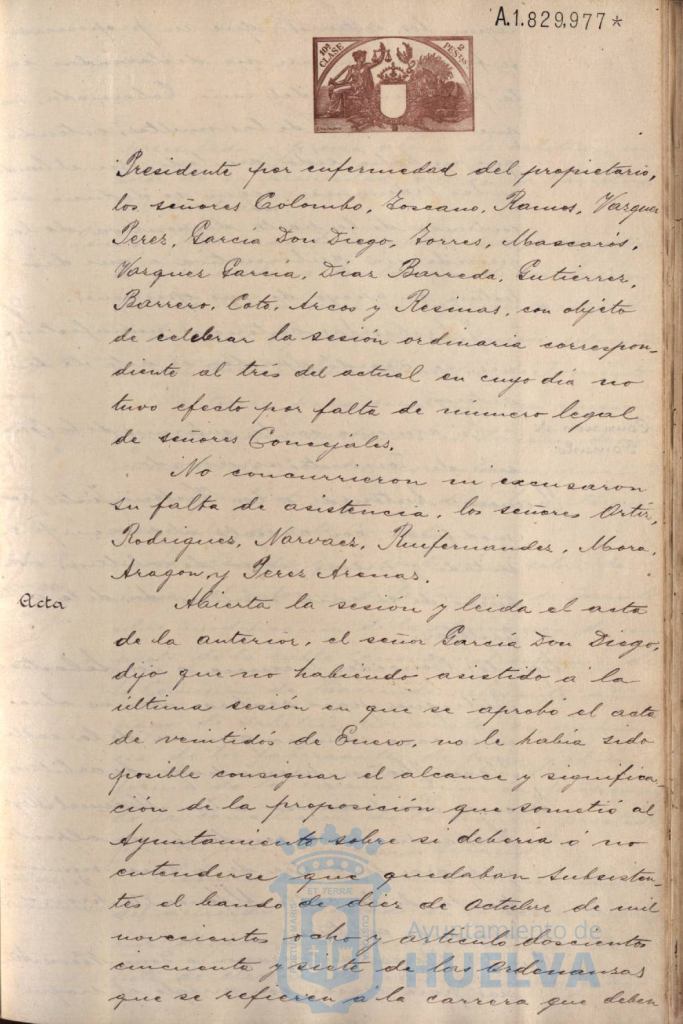 A.1.829,977*
10ª CLASE
2 PESETAS
Presidente por enfermedad del propietario,
los señores Colombo, Toscano, Ramos, Vazquez
Perez, García Don Diego, Torres, Mascarós,
Vazquez García, Diaz Barreda, Gutierrez,
Barrero, Coto, Arcos y Resinas, con objeto
de celebrar la sesión ordinaria correspon-
diente al tres del actual en cuyo dia no
tuvo efecto por falta de número legal
de señores Concejales.
No concurrieron ni excusaron
su falta de asistencia, los señores Ortiz,
Rodriguez, Narvaez, Ruifernandez, Mora,
Aragon, y Perez Arenas.
Acta
Abierta la sesión y leida el acta
de la anterior, el señor García Don Diego,
dijo que no habiendo asistido á la
última sesión en que se aprobó el acta
de veintidós de Enero, no le había sido
posible consignar el alcance y significa-
ción de la proposición que sometió al
Ayuntamiento sobre si debería ó no
entenderse que quedaban subsisten-
tes el bando de diez de Octubre de mil
novecientos ocho y artículo doscientos
cincuenta y siete de las Ordenanzas
que se refieren a la carrera que deben
Ayuntamiento de
HUELVA